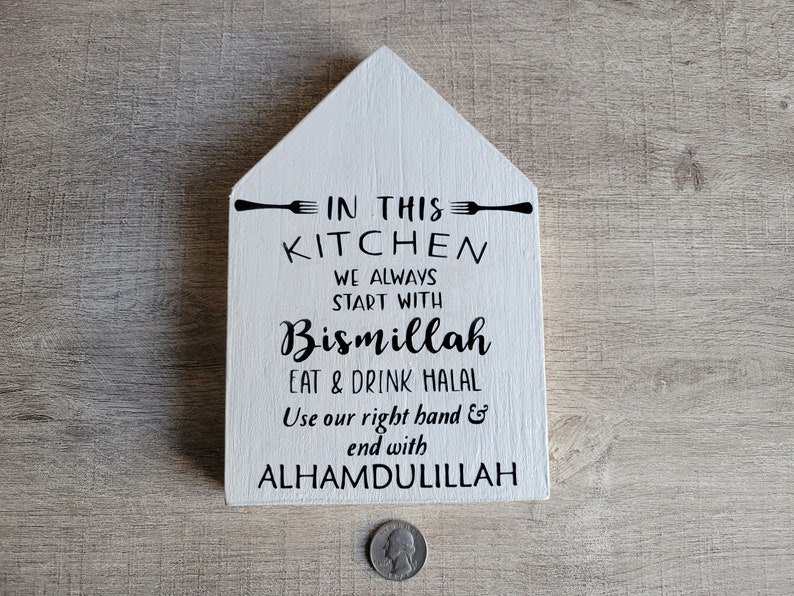 IN THIS
KITCHEN
WE ALWAYS
START WITH
Bismillah
EAT & DRINK HALAL
Use our right hand &
end with
ALHAMDULILLAH